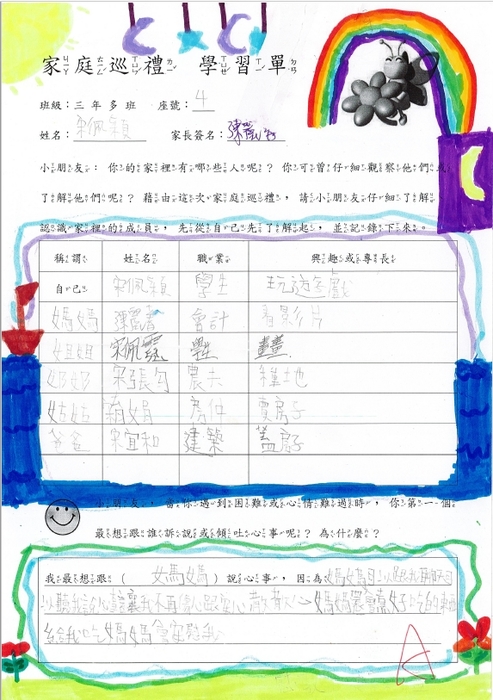 家庭巡禮 學習單
班級：三年多班 座號：4
姓名：宋佩穎 家長簽名：陳麗
小朋友：你的家裡有哪些人呢？你可曾仔細觀察他們或
了解他們呢？藉由這次家庭巡禮，請小朋友仔細了解
認識家裡的成員，先從自己先了解起，並記錄下來。
稱謂 姓名 職業 興趣或專長
自己 宋佩穎 學生 玩遊戲
媽媽 陳麗 會計 看影片
姐姐 宋佩 學生 畫畫
奶奶 宋張勾 農夫 種地
姑姑 娟 房仲 賣房子
爸爸 宋宜和 建築 蓋房子
小朋友，當你遇到困難或心情難過時，你第一個
最想跟誰訴說或傾吐心事呢？為什麼？
我最想跟（媽媽）說心事，因為媽媽可以
以聽我說心讓我不再傷心跟心散散心媽媽還會煮好吃的東西
給我吃媽媽會
A